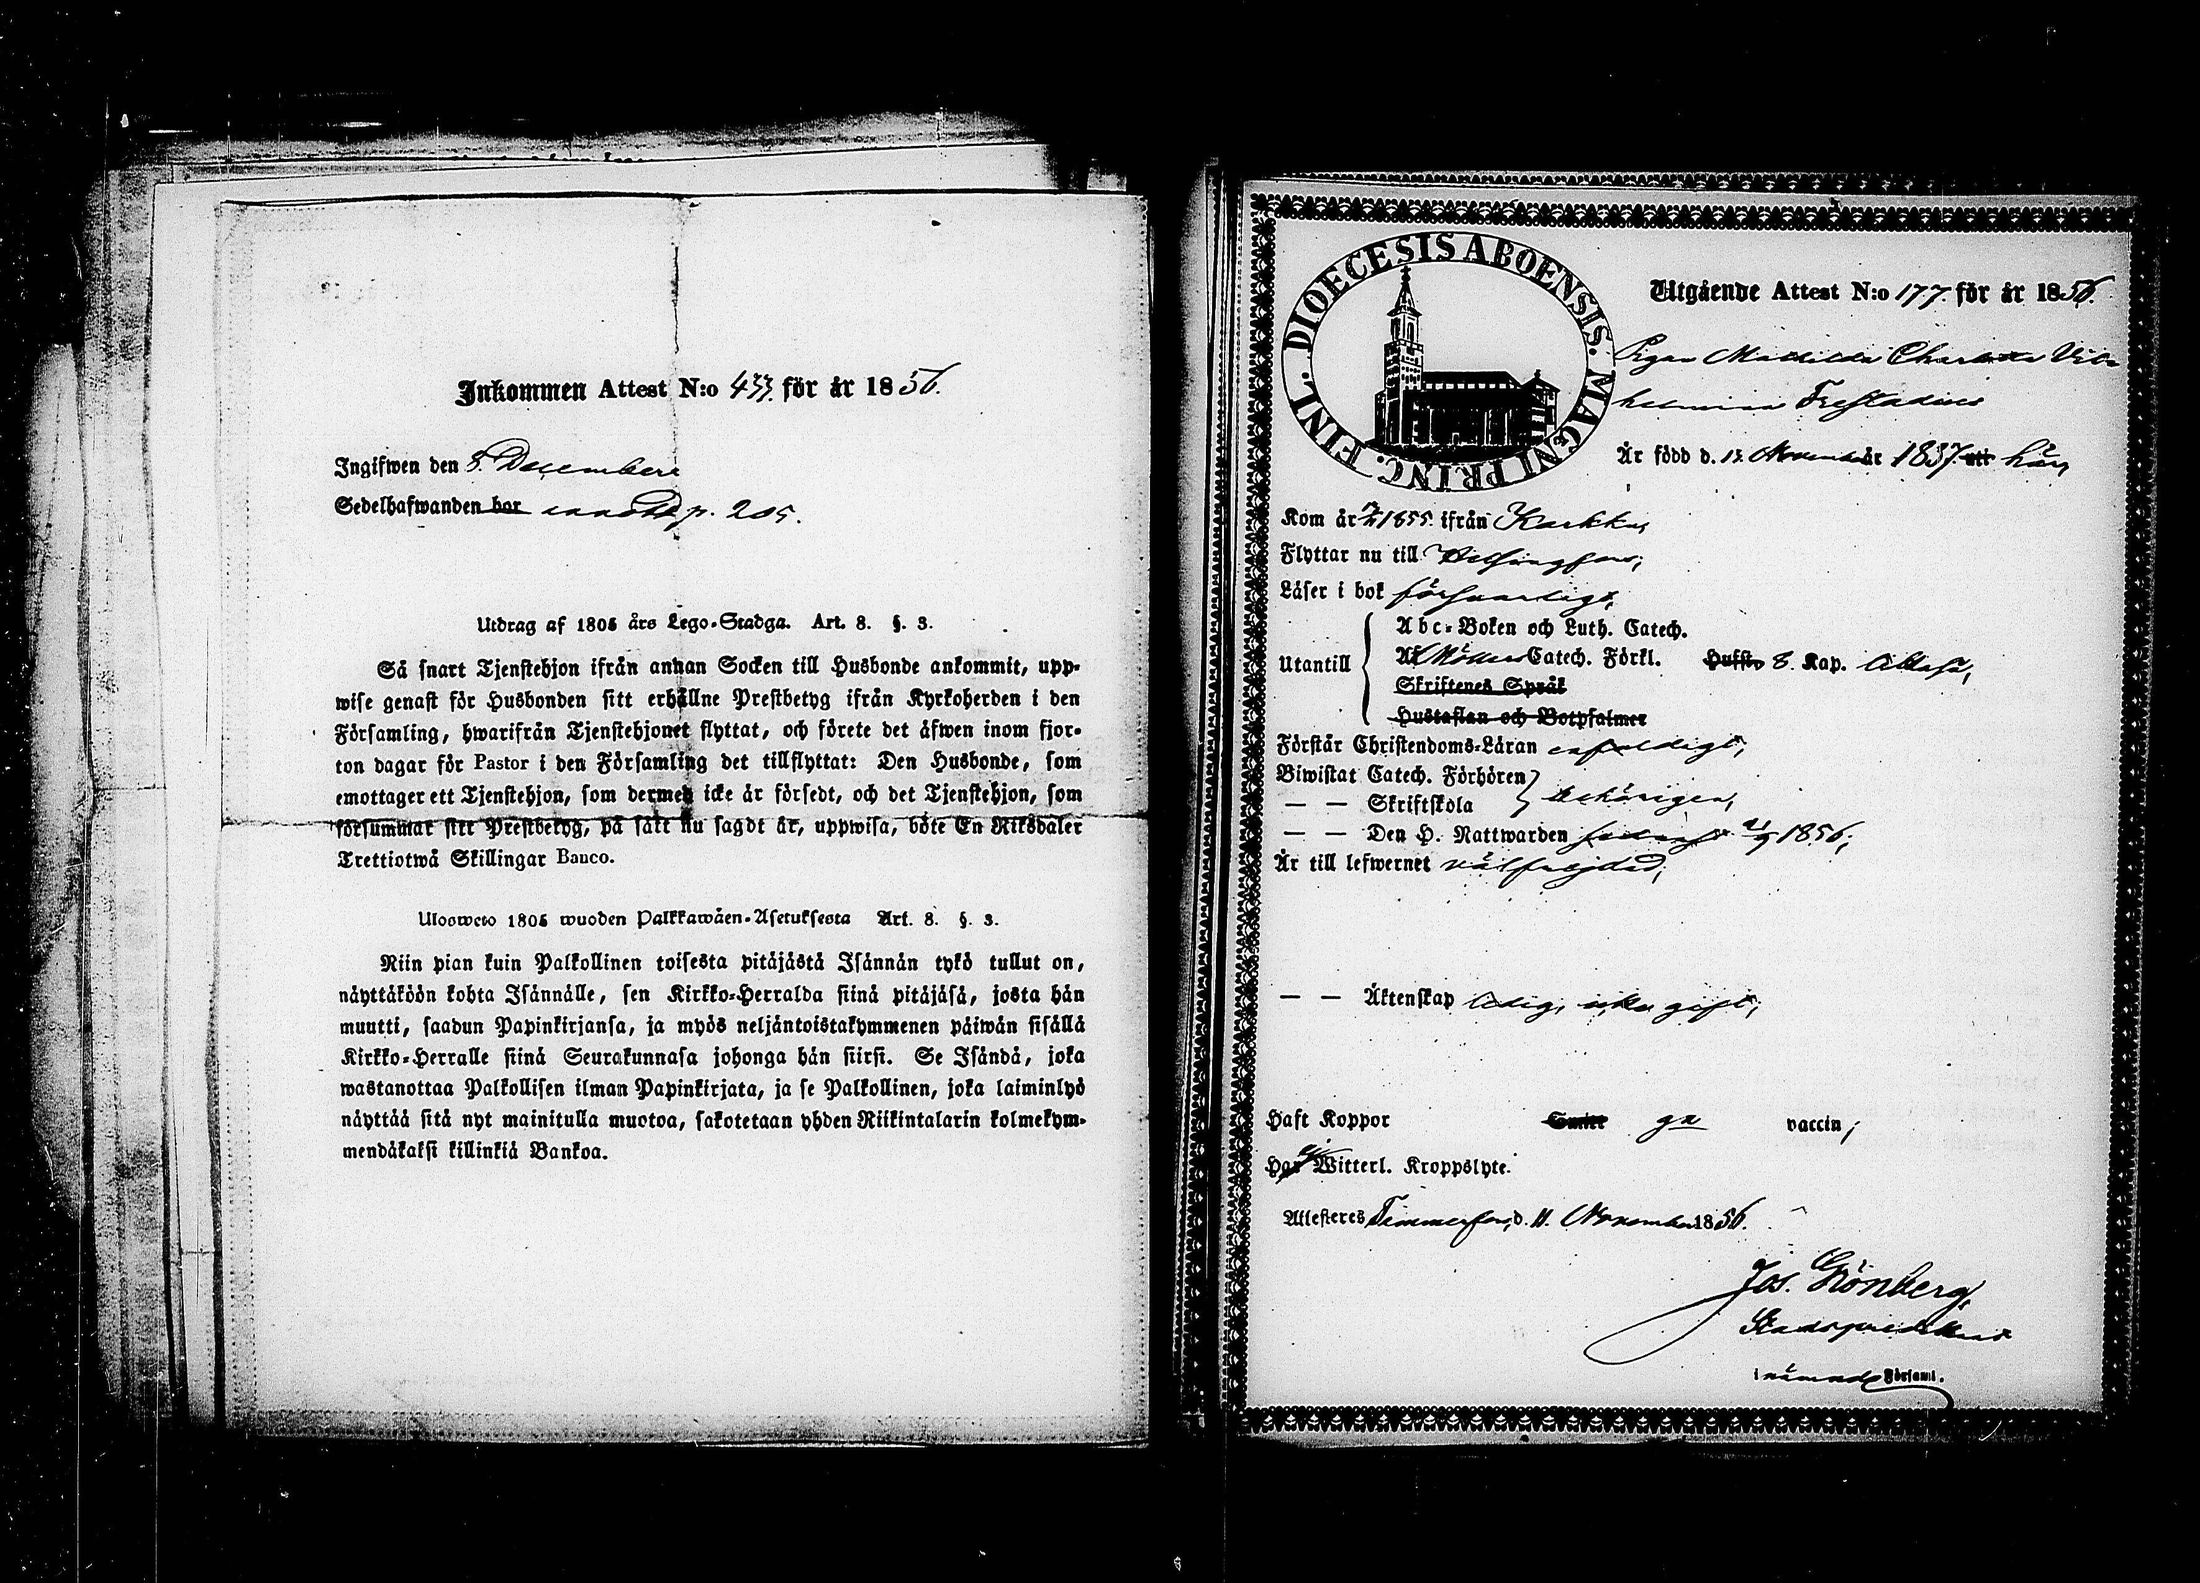 Inkommen Attest N:o 433. för år 1856.
Ingifwen den 8. December
Sedelhafwanden bor p. 205.
Utdrag af 1805 års Lego-Stadga. Art. 8. §. 3.
Så snart Tjenstehjon ifrån annan Socken till Husbonde ankommit, upp-
wise genast för Husbonden sitt erhållne Prestbetyg ifrån Kyrkoherden i den
Församling, hwarifrån Tjenstehjonet flyttat, och förete det äfwen inom fjor-
ton dagar för Pastor i den Församling det tillflyttat: Den Husbonde, som
emottager ett Tjenstehjon, som dermed icke är försedt, och det Tjenstehjon, som
försummar sitt Prestbetyg, på sätt nu sagdt är, uppwisa, böte En Riksdaler
Trettiotwå Skillingar Banco.
Ulosweto 1805 wuoden Palkkawäen-Asetuksesta Art. 8. §. 3.
Niin pian kuin Palkollinen toisesta pitäjästä Isännän tykö tullut on,
näyttäköön kohta Isännälle, sen Kirkko-Herralda siinä pitäjäsä, josta hän
muutti, saadun Papinkirjansa, ja myös neljäntoistakymmenen päiwän sisällä
Kirkko-Herralle siinä Seurakunnasa johonga hän siirsi. Se Isändä, joka
wastanottaa Palkollisen ilman Papinkirjata, ja se Palkollinen, joka laiminlyö
näyttää sitä nyt mainitulla muotoa, sakotetaan yhden Riikintalarin kolmekym-
mendäkaksi killinkiä Bankoa.
DIOECESIS ABOENSIS. MAGNI PRINC. FINL.
Utgående Attest N:o 177. för år 1856.
Pigan Mathilda Charlotta Vil-
helmina Frestadius
Är född d. 15. November år 1837. här,
Kom år 1855. ifrån Karkku,
Flyttar nu till Helsingfors,
Läser i bok försvarligt,
Utantill
Abc-Boken och Luth. Catech.
Catech. Förkl. Husfl. 8. Kap.
Skriftenes Språk
Hustaflan och Botpsalmer
Förstår Christendoms-Läran enfaldigt,
Biwistat Catech. Förhören
— — Skriftskola behörigen,
— — Den H. Nattwarden 21/9 1856;
Är till lefwernet välfrejdad,
— — Äktenskap ledig, icke gift,
Haft Koppor vaccin;
Har Witterl. Kroppslyte.
Attesteres Tammerfors, d. 11. November 1856.
Jos. Grönberg,
Stadspredikant
i nämnde Församl.